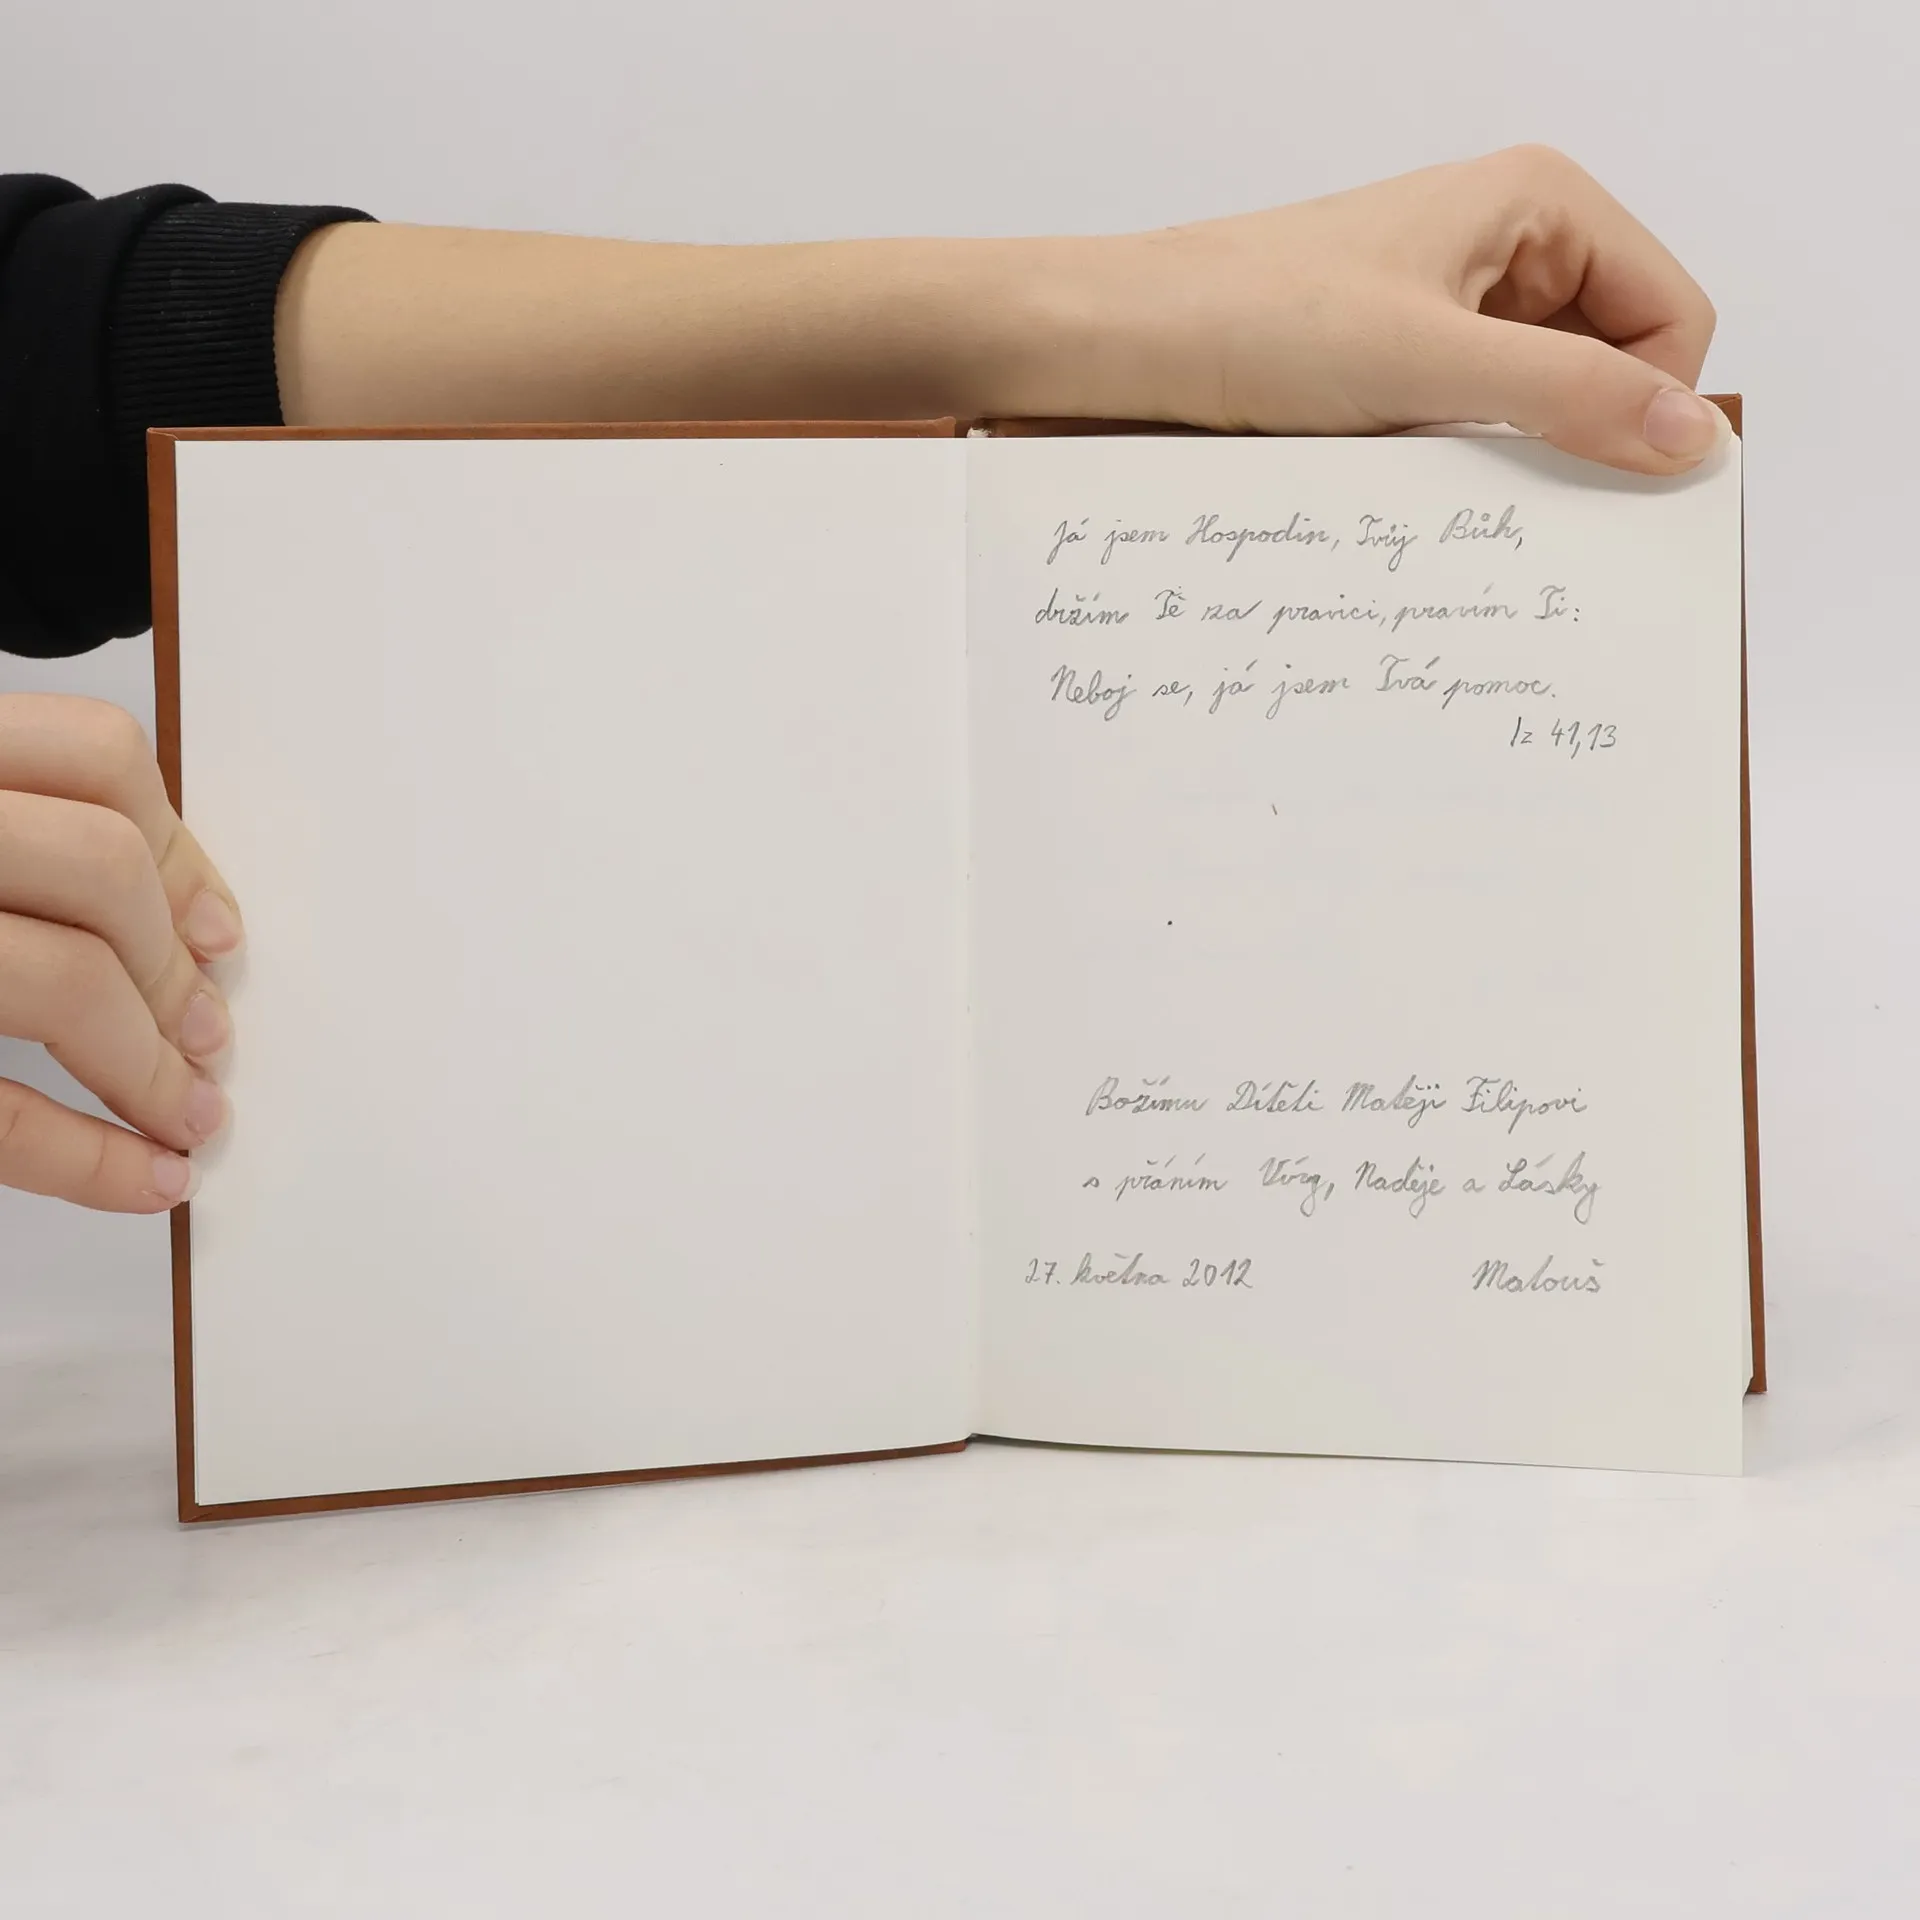 Já jsem Hospodin, Tvůj Bůh,
držím Tě za pravici, pravím Ti:
Neboj se, já jsem Tvá pomoc.
Iz 41,13
Božímu Dítěti Matěji Filipovi
s přáním Víry, Naděje a Lásky
27. května 2012 Matouš